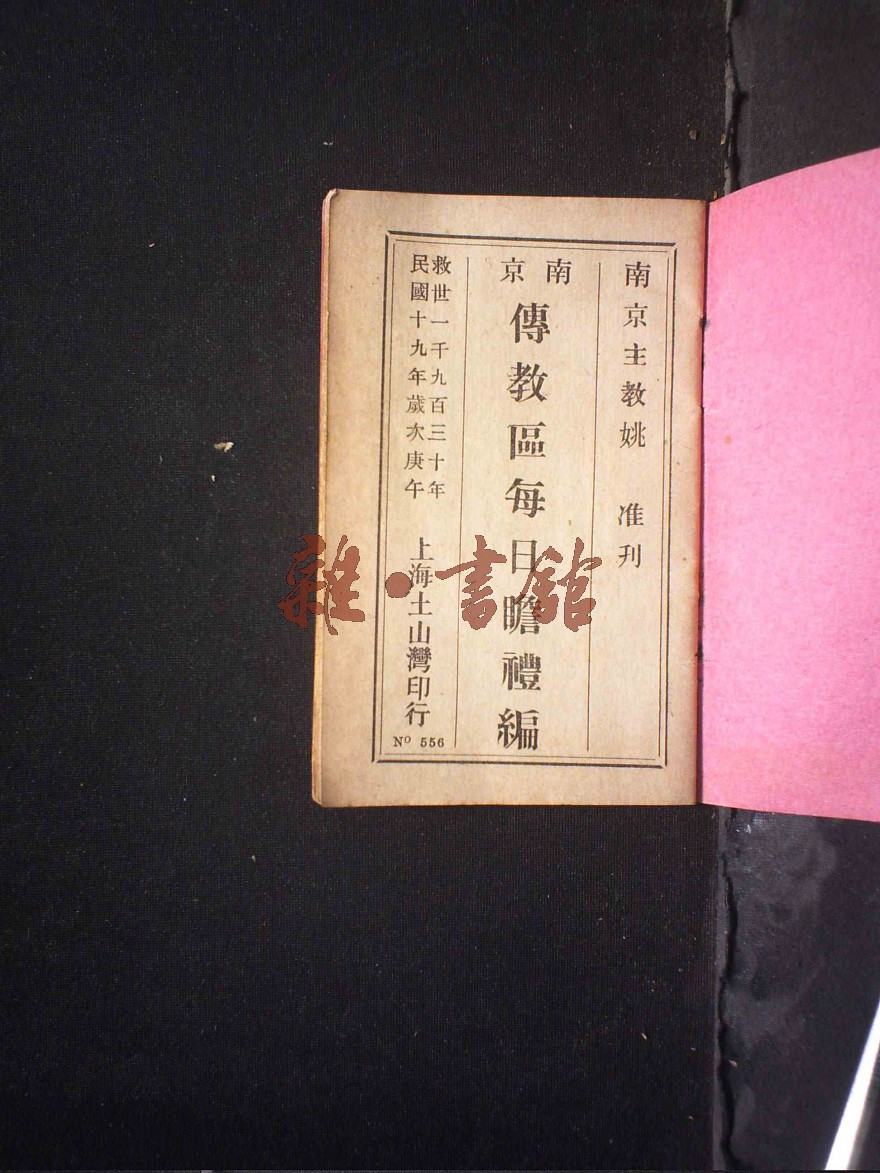 南京主教姚 准刊
南京
傳教區每日瞻禮編
救世一千九百三十年
民國十九年歲次庚午
上海土山灣印行
Nº 556
雜·書館